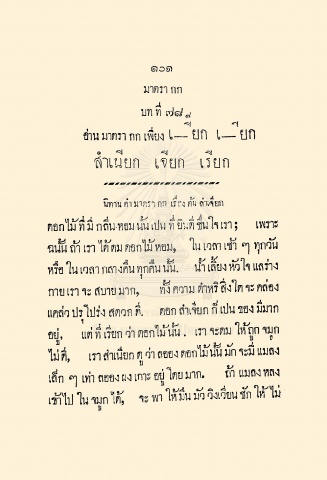 ๑๐๑
มาตรา กก
บท ที่ ๗๘
อ่าน มาตรา กก เพียง เ—ียก เ—ียก
สำเนียก เจียก เรียก
นิทาน คำ มาตรา กก เรื่อง ต้น ลำเจียก
ดอกไม้ ที่ มี กลิ่น หอม นั้น เป็น ที่ ยินดี ชื่น ใจ เรา; เพราะ
ฉนั้น ถ้า เรา ได้ ดม ดอกไม้ หอม, ใน เวลา เช้า ๆ ทุกวัน
หรือ ใน เวลา กลางคืน ทุกคืน นั้น. น้ำ เลี้ยง หัวใจ แล ร่าง
กาย เรา จะ สบาย มาก, ทั้ง ความ ดำหริ สิ่งใด จะ คล่อง
แคล่ว ปรุ โปร่ง สดวก ดี. ดอก ลำเจียก ก็ เป็น ของ มี มาก
อยู่. แต่ ที่ เรียก ว่า ดอกไม้ นั้น. เรา จะ ดม ให้ ถูก จมูก
ไม่ ดี, เรา สำเนียก ดู ว่า ลออง ดอกไม้ นั้น มัก จะ มี แมลง
เล็ก ๆ เท่า ลออง ผง เกาะ อยู่ โดย มาก. ถ้า แมลง หลง
เข้าไป ใน จมูก ได้, จะ พา ให้ มึน มัว วิงเวียน ชัก ให้ ไม่